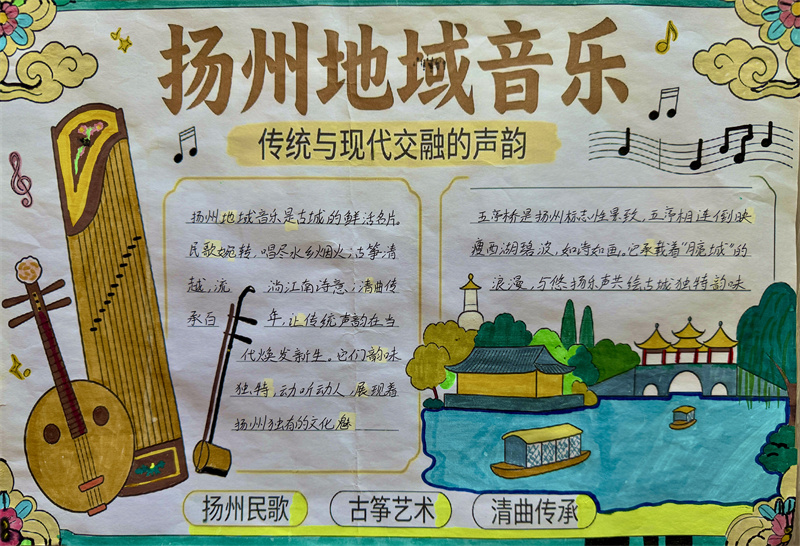 扬州地域音乐
传统与现代交融的声韵
扬州地域音乐是古城的鲜活名片。
民歌婉转,唱尽水乡烟火;古筝清
越,流淌江南诗意;清曲传
承百年,让传统声韵在当
代焕发新生。它们韵味
独特,动听动人,展现着
扬州独有的文化魅
五亭桥是扬州标志性景致,五亭相连倒映
瘦西湖碧波,如诗如画。它承载着“月亮城”的
浪漫,与悠扬乐声共绘古城独特韵味
扬州民歌
古筝艺术
清曲传承